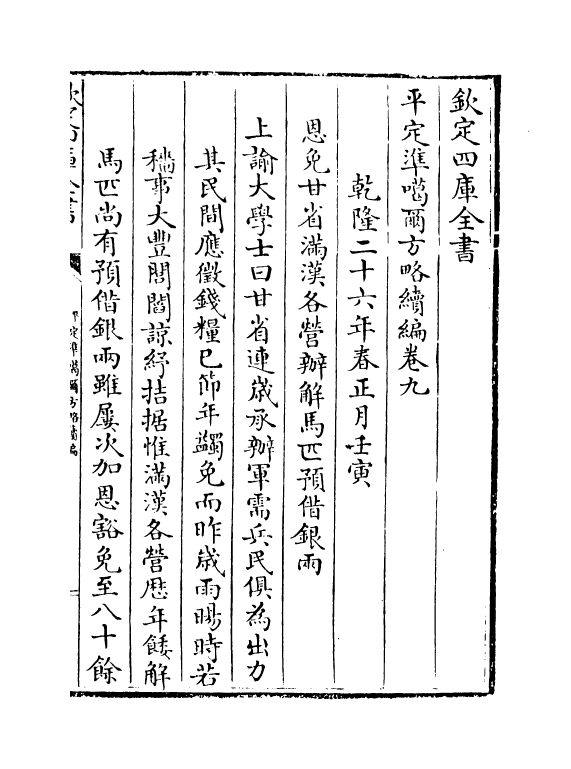 欽定四庫全書
平定準噶爾方略續編卷九
乾隆二十六年春正月壬寅
恩免甘省滿漢各營辦解馬匹預借銀兩
上諭大學士曰甘省連歲承辦軍需兵民俱為出力
其民間應徵錢糧已節年蠲免而昨歲雨暘時若
穡事大豐閭閻諒紓拮据惟滿漢各營歷年餧解
馬匹尚有預借銀兩雖屢次加恩豁免至八十餘
欽定四庫全書
平定準噶爾方略續編
一